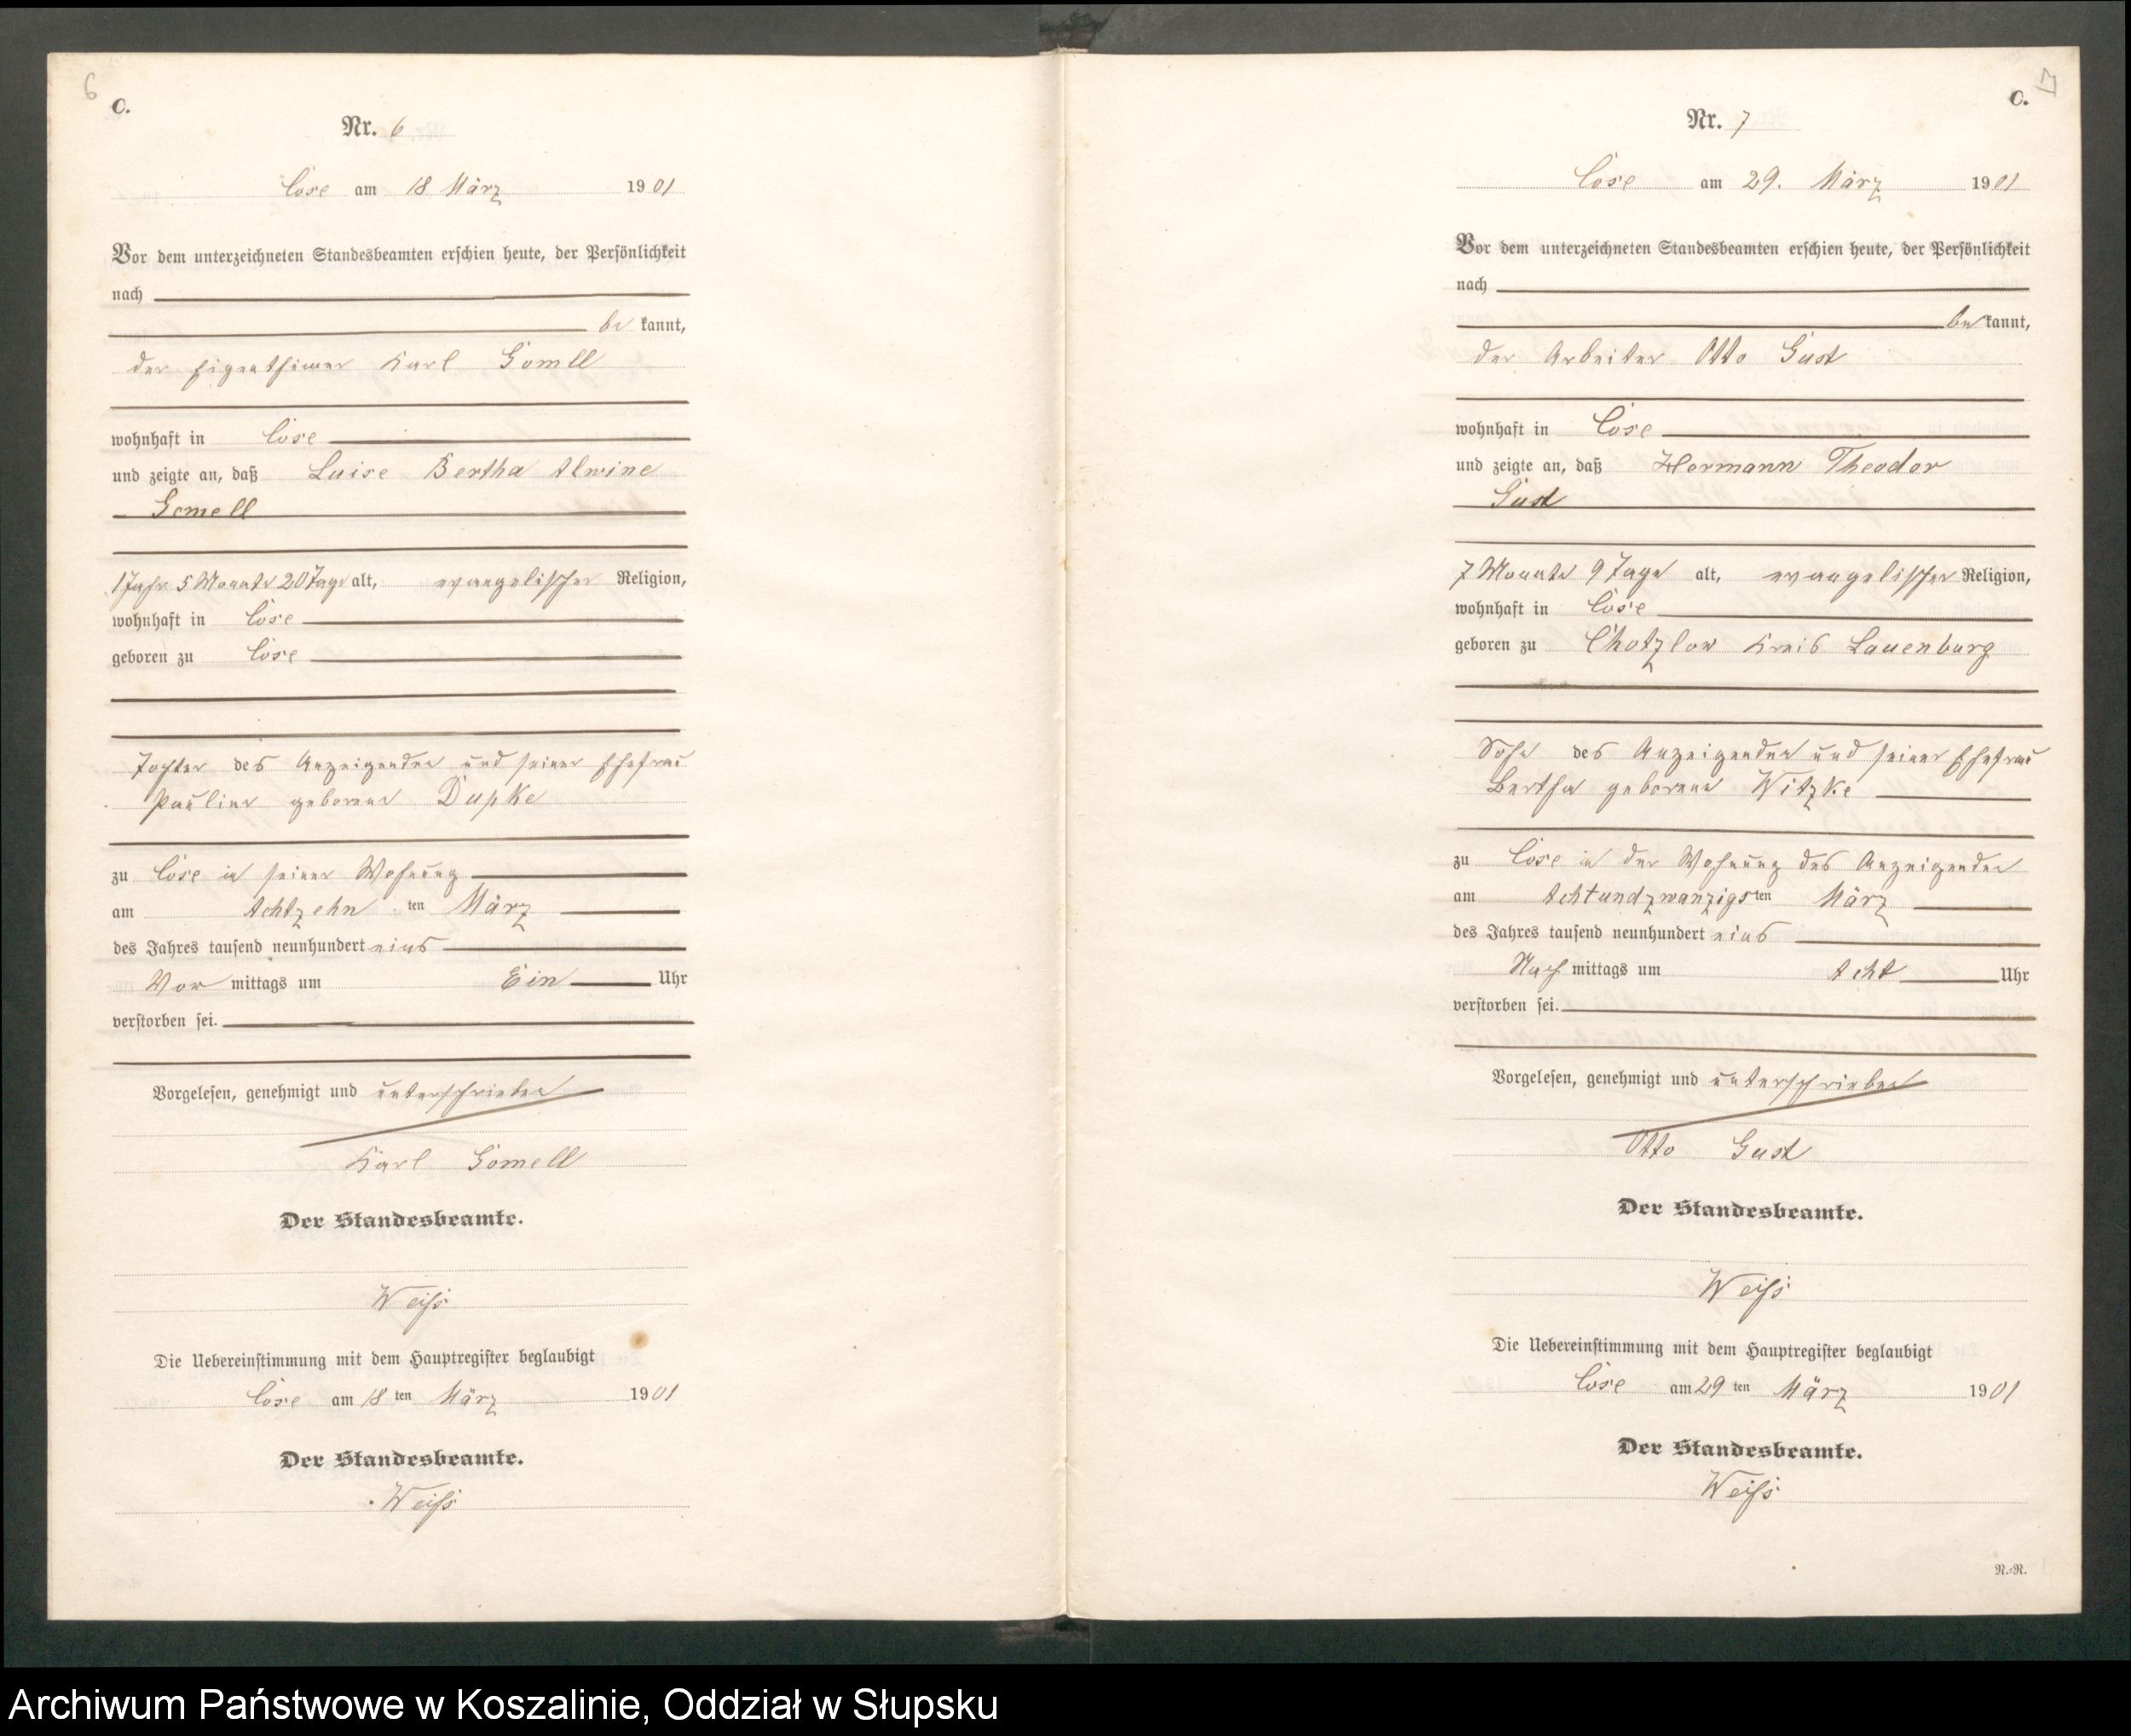 6
C.
Nr. 6
Cose am 18 März 1901
Vor dem unterzeichneten Standesbeamten erschien heute, der Persönlichkeit
nach
be kannt,
der Eigenthümer Karl Gomell
wohnhaft in Cose
und zeigte an, daß Luise Bertha Alwine
Gomell
1 Jahr 5 Monate 20 Tage alt, evangelischer Religion,
wohnhaft in Cose
geboren zu Cose
Tochter des Anzeigenden und seiner Ehefrau
Pauline geborene Dupke
zu Cose in seiner Wohnung
am Achtzehn ten März
des Jahres tausend neunhundert eins
Vor mittags um Ein Uhr
verstorben sei.
Vorgelesen, genehmigt und unterschrieben
Karl Gomell
Der Standesbeamte.
Weiß
Die Uebereinstimmung mit dem Hauptregister beglaubigt
Cose am 18 ten März 1901
Der Standesbeamte.
Weiß
C.
Nr. 7
Cose am 29. März 1901
Vor dem unterzeichneten Standesbeamten erschien heute, der Persönlichkeit
nach
be kannt,
der Arbeiter Otto Gust
wohnhaft in Cose
und zeigte an, daß Hermann Theodor
Gust
7 Monate 9 Tage alt, evangelischer Religion,
wohnhaft in Cose
geboren zu Chotzlow Kreis Lauenburg
Sohn des Anzeigenden und seiner Ehefrau
Bertha geborene Witzke
zu Cose in der Wohnung des Anzeigenden
am Achtundzwanzigsten März
des Jahres tausend neunhundert eins
Nach mittags um Acht Uhr
verstorben sei.
Vorgelesen, genehmigt und unterschrieben
Otto Gust
Der Standesbeamte.
Weiß
Die Uebereinstimmung mit dem Hauptregister beglaubigt
Cose am 29 ten März 1901
Der Standesbeamte.
Weiß
N.-R.
Archiwum Państwowe w Koszalinie, Oddział w Słupsku